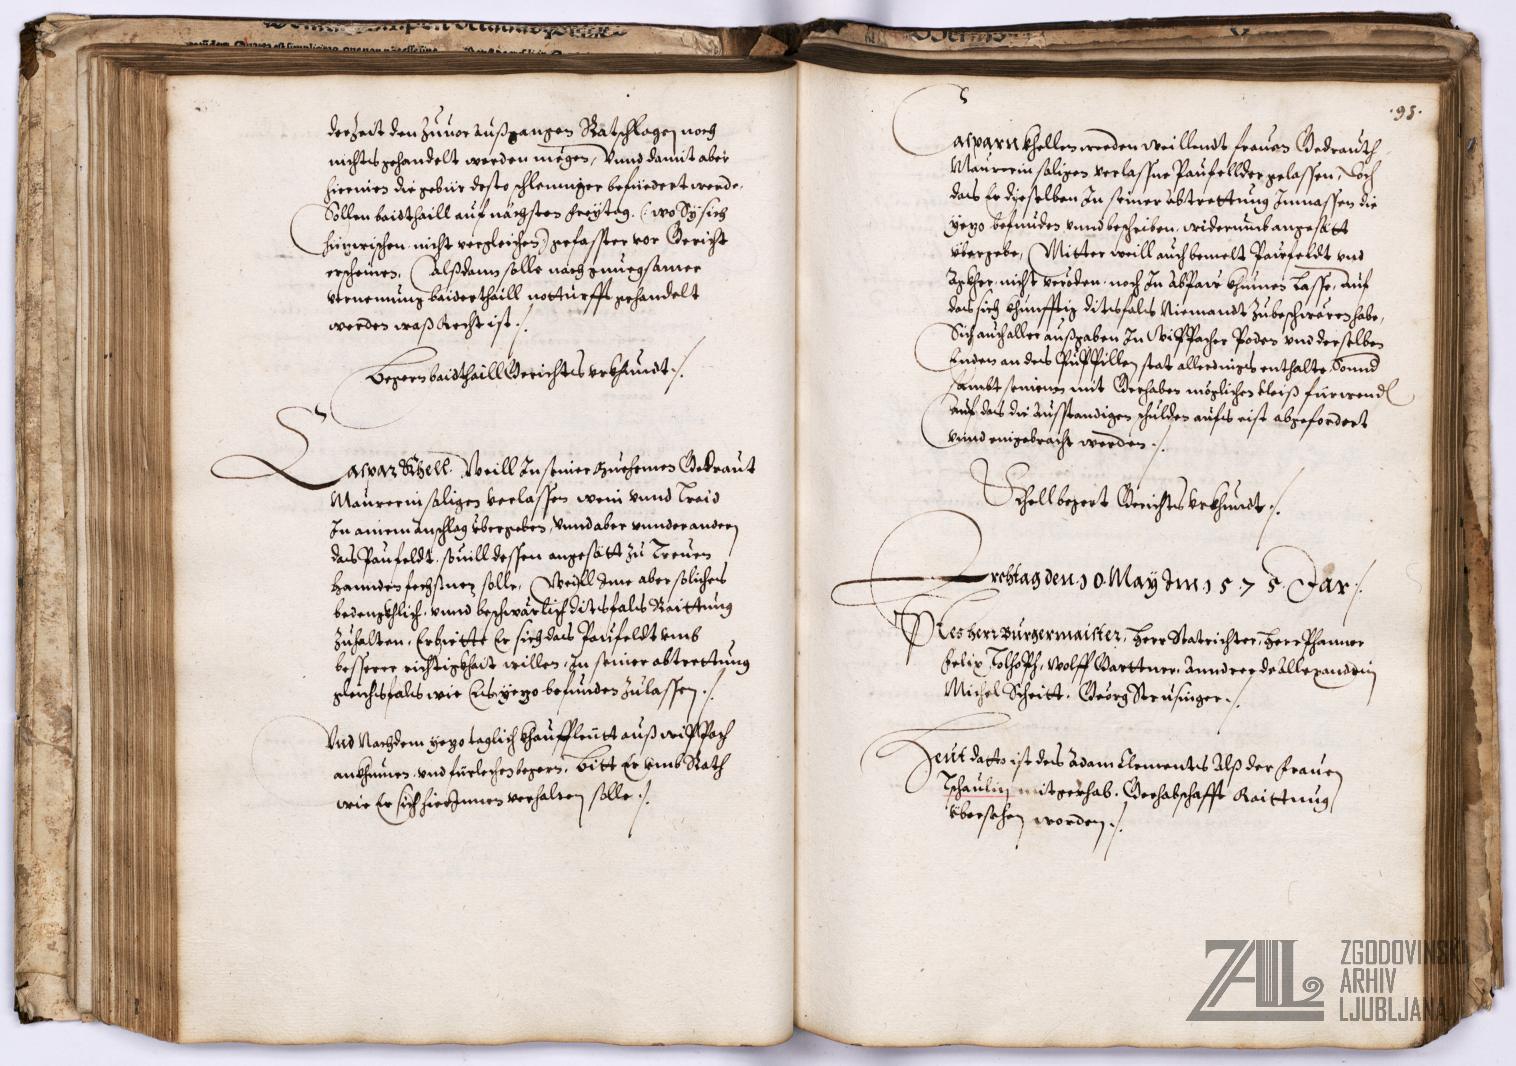 derzeit den Zuuor außgangen Ratschlagen noch
nichts gehandelt werden mügen, Vnnd damit aber
hierinen die gebür desto schleuniger befürdert werde,
Sollen baidthaill auf nächsten Freytag. (: wo Sy sich
hinzwischen nicht vergleichen) gefasster vor Gericht
erscheinen, Alßdann solle nach gnuegsamer
vernemung baiderthaill notturfft gehandelt
werden waß Recht ist ./.
Begern baidthaill Gerichts vrkhundt ./.
Caspar Khell. Weill In seiner Gedraut
Maurerin säligen verlassen wein vnnd Traid
In ainem Anschlag vbergeben, vnnd aber vnnder andern
das Paufeldt, souill dessen angesätt zu Treuen
Hannden solle, Weill Ime aber solliches
bedenckhlich, vnnd beschwärlich ditsfals Raittung
Zuhalten, Erbiette Er sich das Paufeldt vmb
besserer richtigkhait willen, In seiner abtrettung
gleichsfals wie Ers yezo befunden Zulassen ./.
Vnd Nachdem yezo taglich khauffleütt auß wippach
ankhumen, vnd begern, Bitt Er vmb Rath
wie Er sich hierInnen verhalten solle ./.
.95.
Casparn Khellen werden weillendt frauen Gedrauth
Maurerin säligen verlassne Paufellder gelassen, Doch
das Er dieselben In seiner Abtrettung Inmassen die
yezo befunden vnnd beschriben, widerumb angesätt
vbergebe, Mitler weill auch bemelt Paufeldt vnd
Agkher, nicht veröden, noch In Abpaw khumen Lasse, Auf
das sich khunfftig ditsfals Niemandt Zubeschwären habe,
Sich auch aller außgaben In Wippacher Poden vnd derselben
Enden an der Puppillen stat allerdings enthalte, Sonnd
sambt seinem mit Gerhaben möglichen fleiß fürwend
auf das die Ausstandigen schulden aufs eist abgefordert
vnnd eingebracht werden ./.
Khell begert Gerichts vrkhundt ./.
Erchtag den 10 May Im 1575. Jar ./.
Pres: Herr Burgermaister, Herr Statrichter, Herr Phanner
Felix, Wolff Garttner, Anndree de Allexandrin
Michel Scheitt, Georg Streusinger ./.
Heut datto ist des Adam Clements Alß der Frauen
Tschaulin mitgerhab, Gerhabschafft Raittung
vbersehen worden ./.
ZAL
ZGODOVINSKI
ARHIV
LJUBLJANA